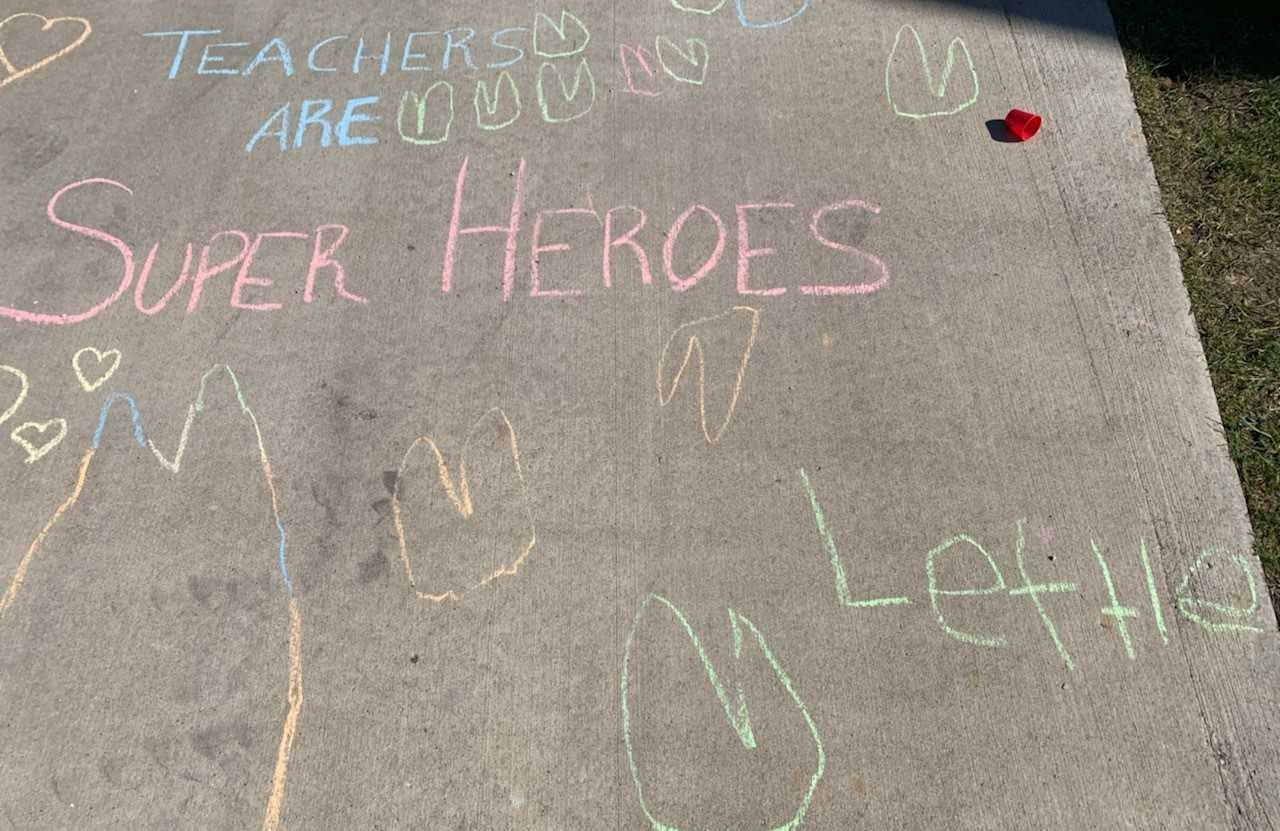 TEACHERS
ARE
SUPER HEROES